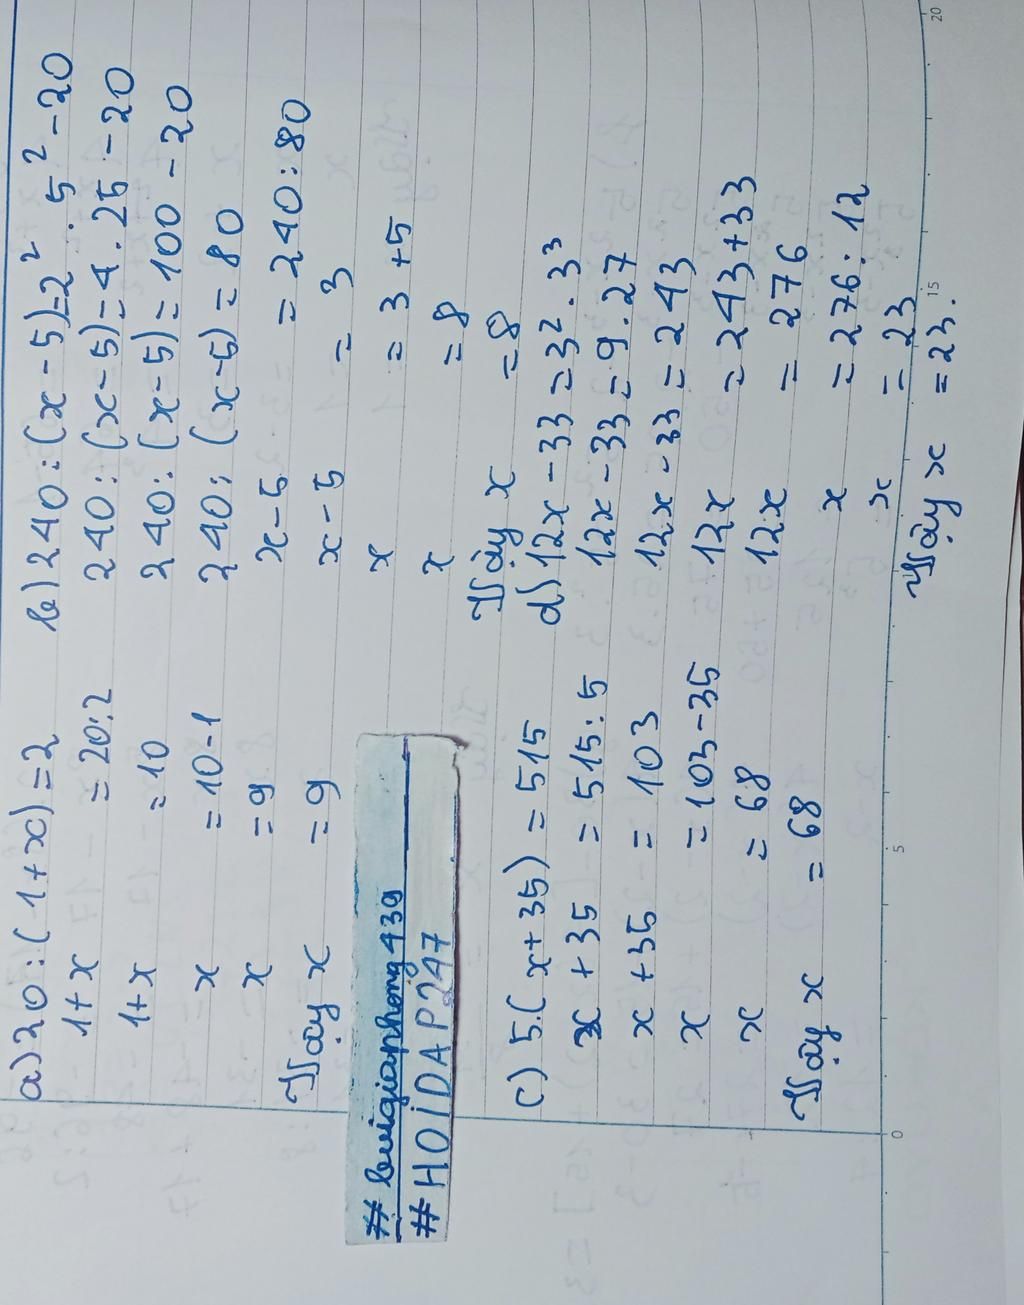 a) 20 : (1+x) = 2
1+x = 20:2
1+x = 10
x = 10-1
x = 9
Vậy x = 9
b) 240 : (x-5) = 2² . 5² - 20
240 : (x-5) = 4 . 25 - 20
240 : (x-5) = 100 - 20
240 : (x-5) = 80
x-5 = 240:80
x-5 = 3
x = 3+5
x = 8
Vậy x = 8
# buigiaphong439
#HOIDAP247
c) 5.(x+35) = 515
x+35 = 515:5
x+35 = 103
x = 103-35
x = 68
Vậy x = 68
d) 12x-33 = 3² . 3³
12x-33 = 9.27
12x-33 = 243
12x = 243+33
12x = 276
x = 276:12
x = 23
Vậy x = 23.
0
5
15
20